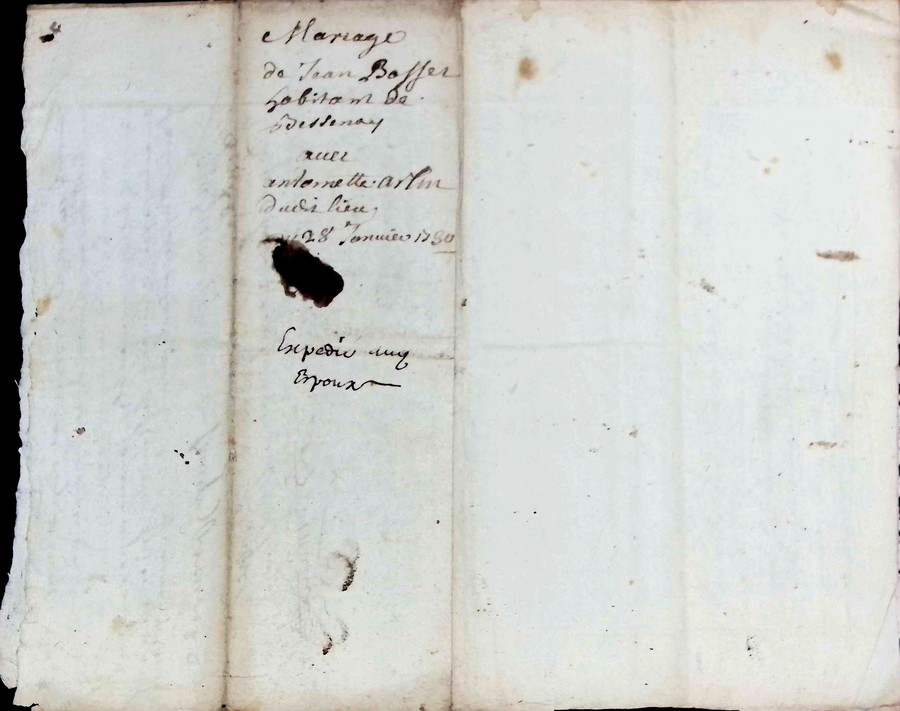 Mariage
de Jean Basset
habitant de
Bessenay
avec
antoinette arlin
dudit lieu
28 Janvier 1780
Expedié aux
Epoux